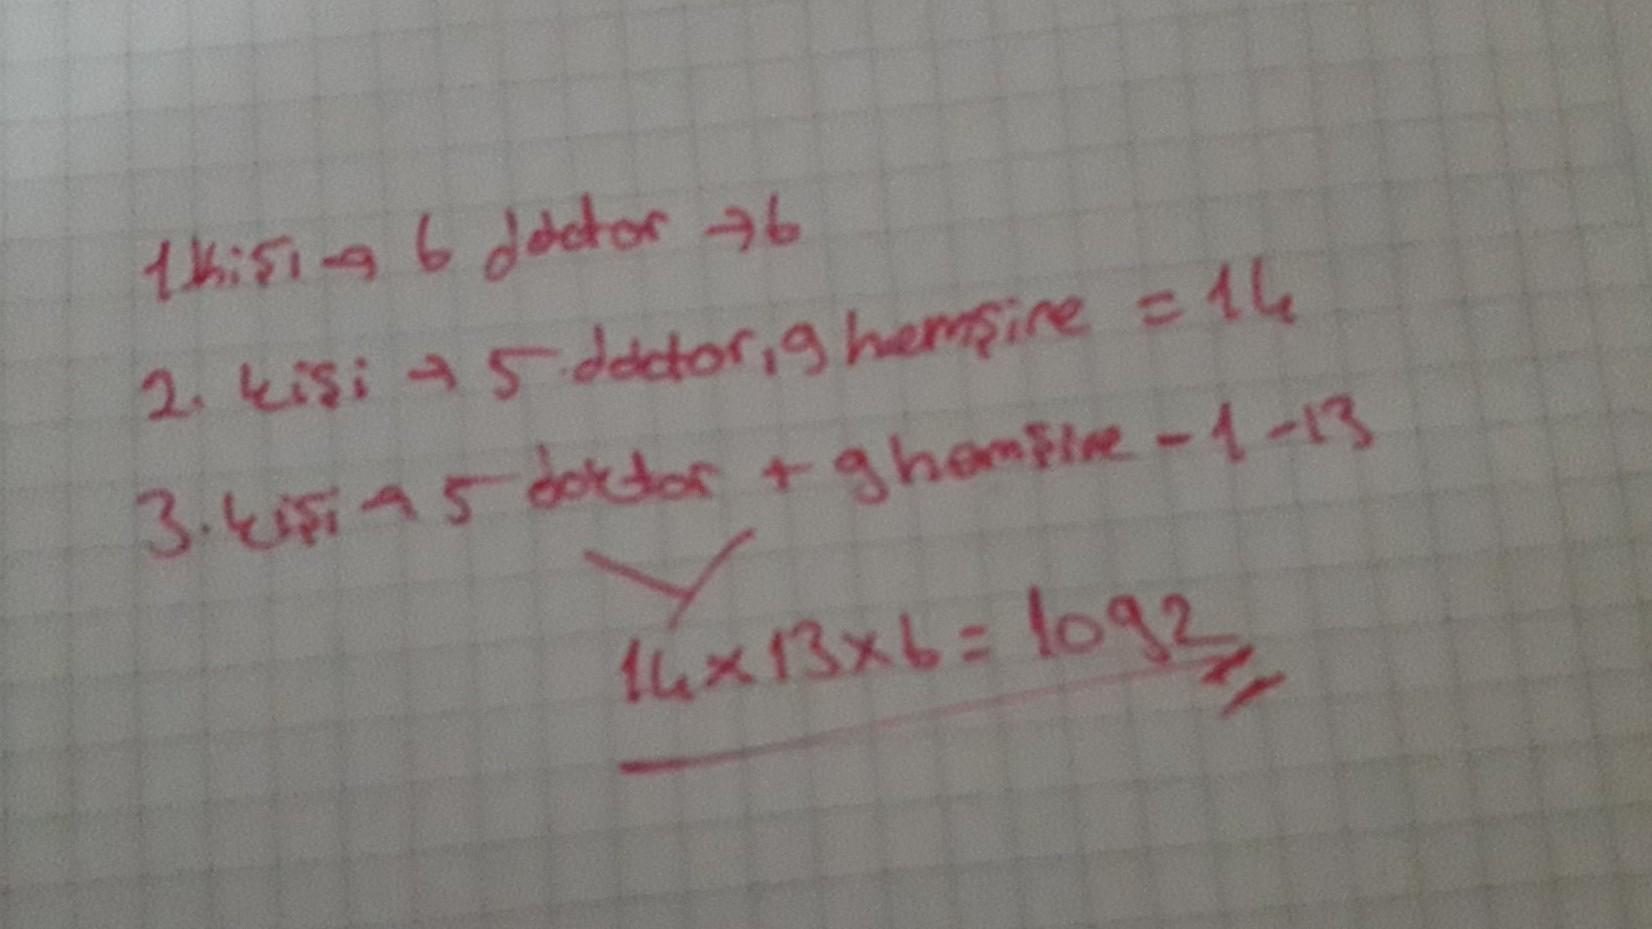 1 kişi → 6 doktor → 6
2. kişi → 5 doktor, 9 hemşire = 14
3. kişi → 5 doktor + 9 hemşire - 1 - 13
14x13x6 = 1092